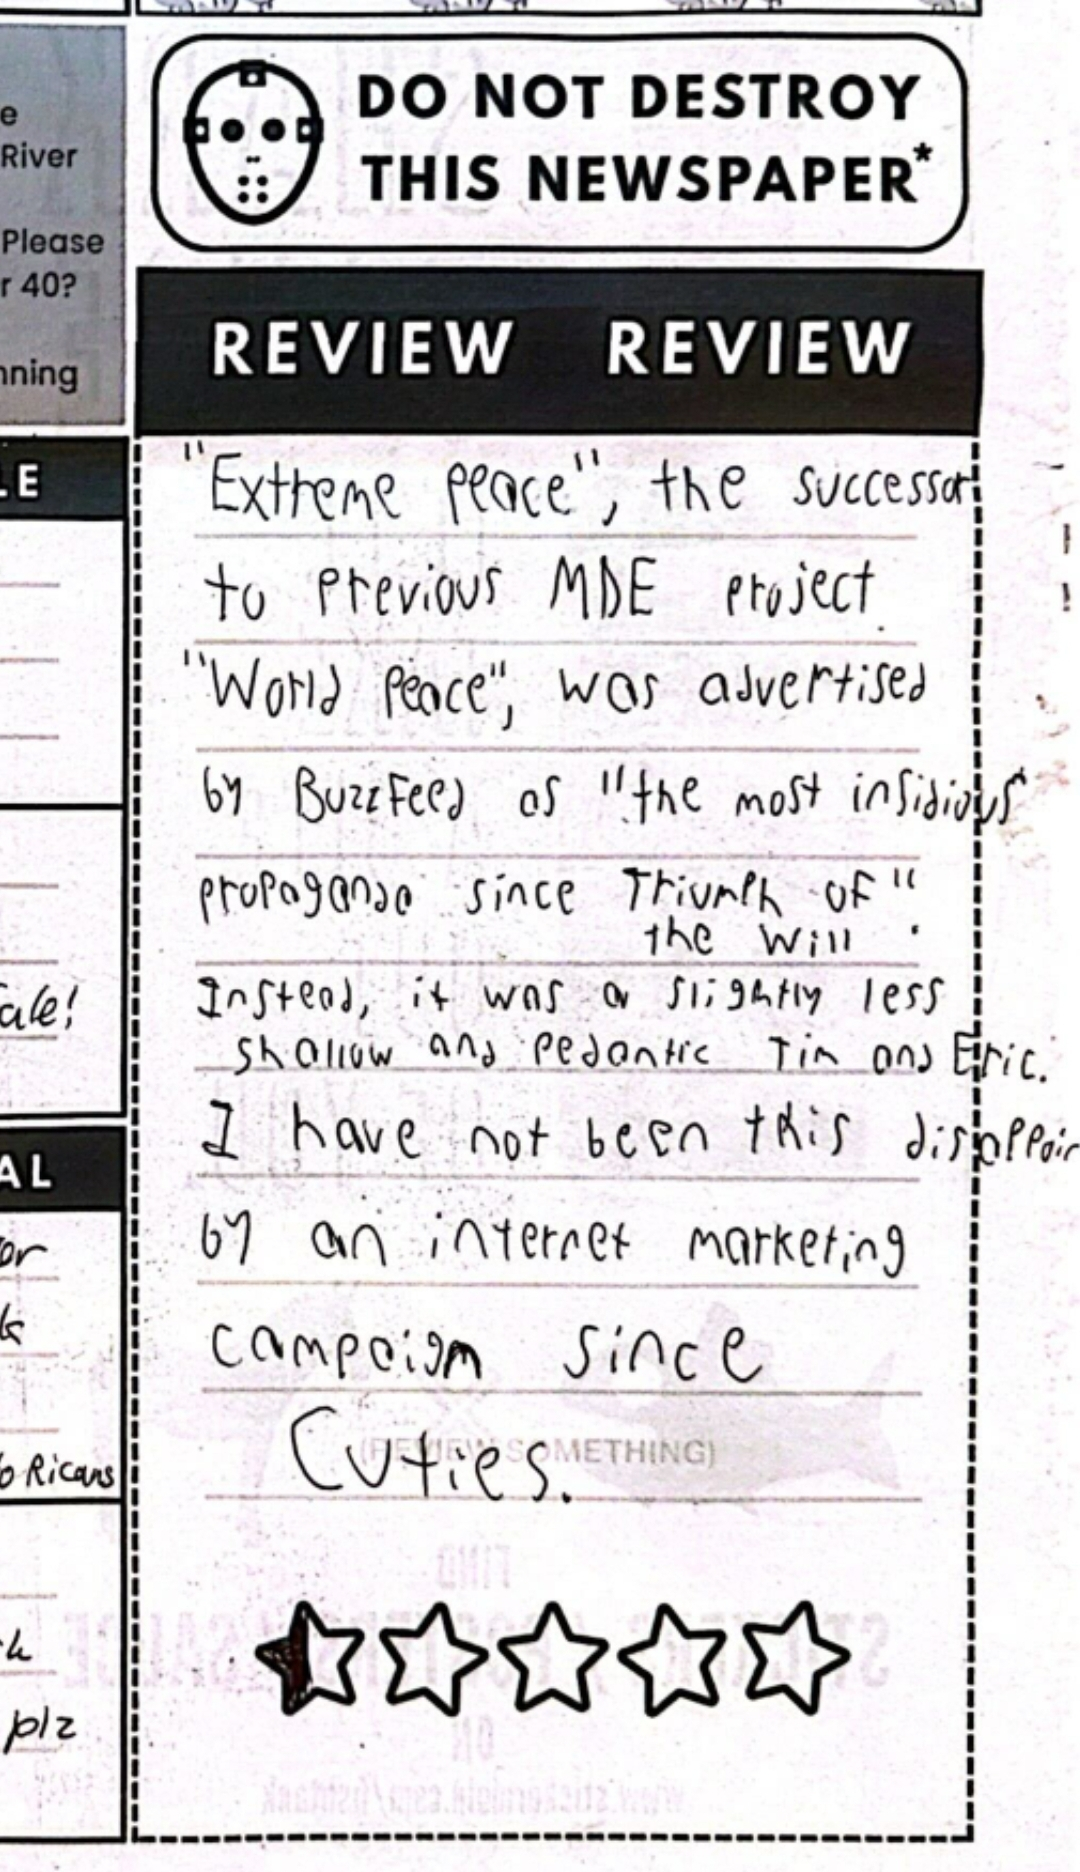 e
River
Please
r 40?
nning
LE
ale!
AL
or
k
o Ricans
plz
DO NOT DESTROY
THIS NEWSPAPER*
REVIEW REVIEW
"Extreme peace", the successor
to previous MDE project
"World Peace", was advertised
by BuzzFeed as "the most insidious
propaganda since Triumph of
the Will".
Instead, it was a slightly less
shallow and pedantic Tim and Eric.
I have not been this disappoin
by an internet marketing
campaign since
Cuties.
(REVIEW SOMETHING)
FIND
ON